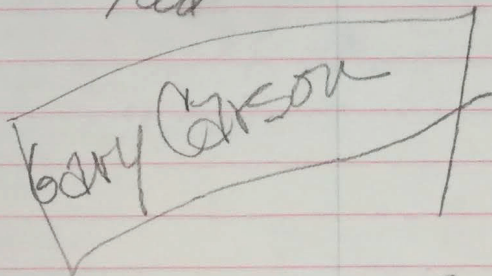 Gary Carson